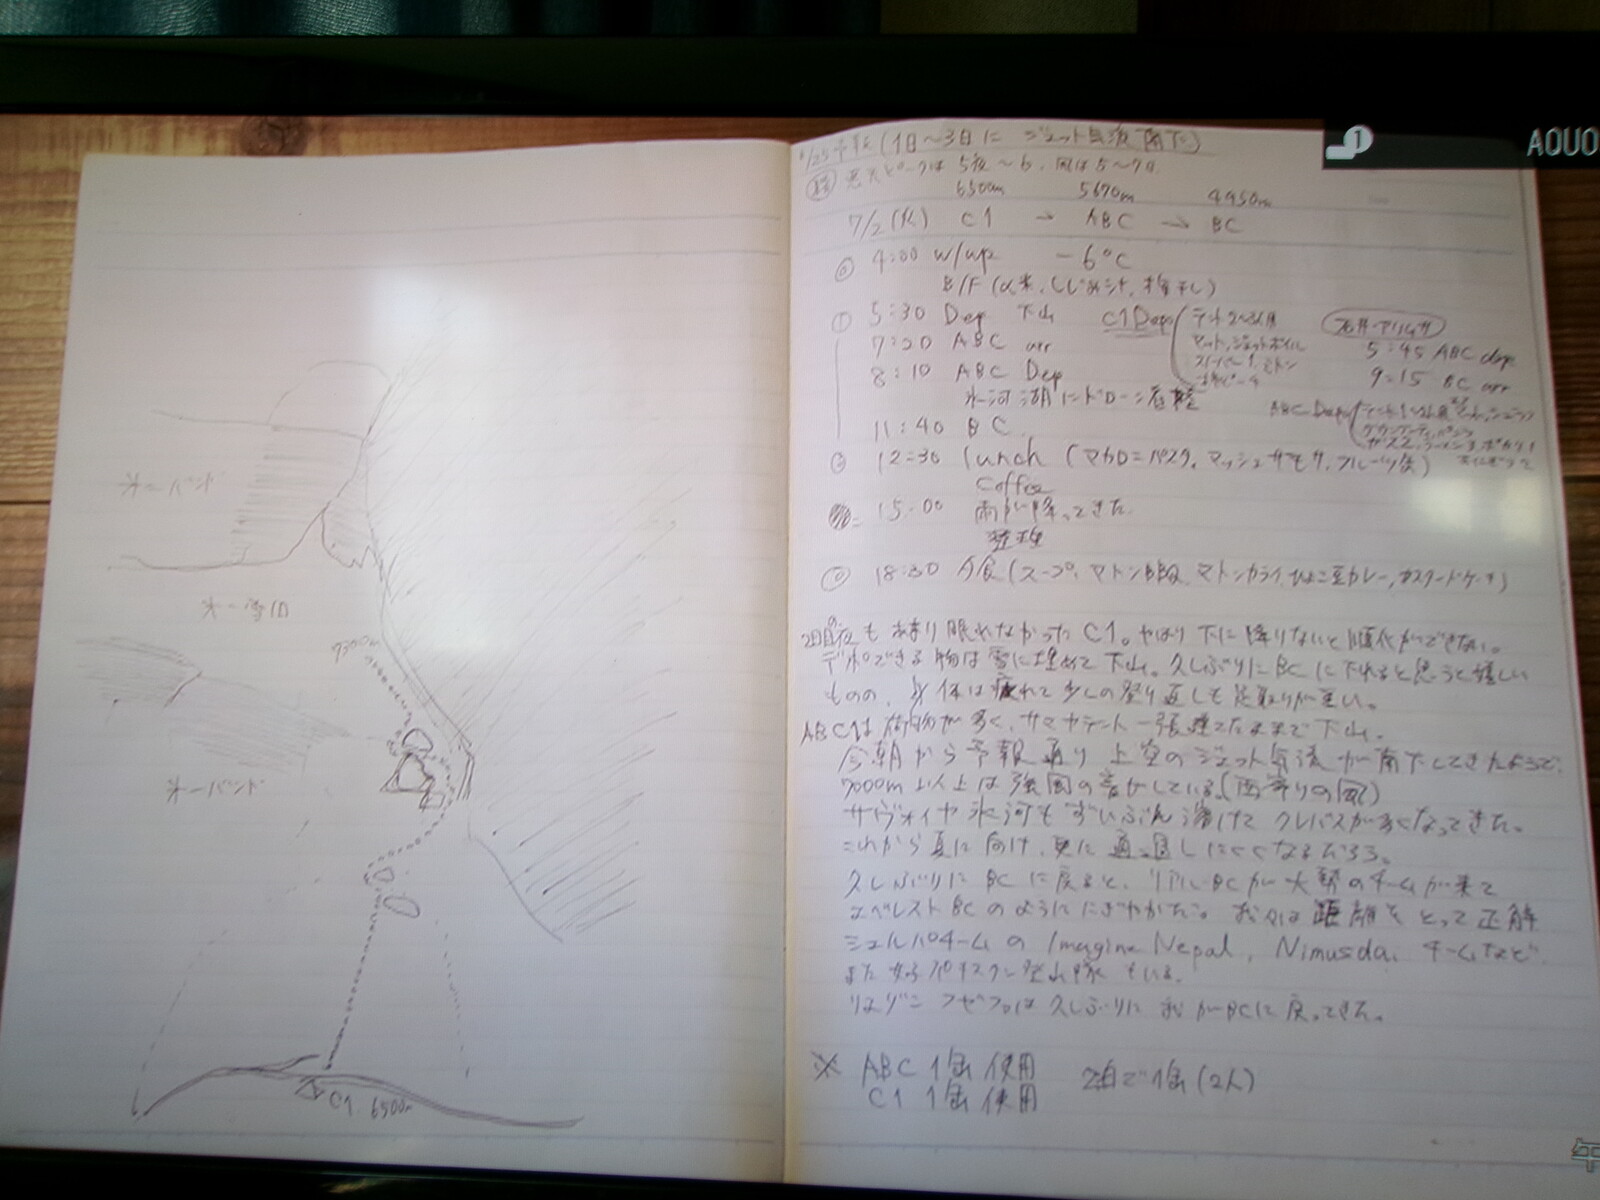 氷一バンド
氷一雪田
7300m
氷一バンド
C1 6500m
6/25予報(1日〜3日に ジェット気流南下)
悪天ピークは 5夜〜6. 風は5〜7日
6500m 5670m 4950m
7/2(火) C1 → ABC → BC
4:00 w/up -6℃
B/F (α米, しじみ汁, 梅干し)
① 5:30 Dep 下山 C1 Depo テント2〜3人用
マット, ジェットボイル
7:20 ABC arr
5:45 ABC dep
8:10 ABC Dep
9:15 BC arr
氷河湖にドローン
ABC Depo
11:40 BC
12:30 lunch (マカロニパスタ, マッシュサモサ, フルーツ缶)
Coffee
15:00 雨が降ってきた
整理
18:30 夕食(スープ, マトンBBQ, マトンカライ, ひよこ豆カレー, カスタードケーキ)
2日目夜も あまり眠れなかったC1。やはり下に降りないと順化ができない。
デポできる物は雪に埋めて下山。久しぶりにBCに下れると思うと嬉しい
ものの、身体は疲れて少しの登り返しも足取りが重い。
ABCは荷物が多く、サマヤテント一張建てたままで下山。
今朝から予報通り上空のジェット気流が南下してきたようで、
7000m以上は強風の音がしている。(西寄りの風)
サヴォイヤ氷河もずいぶん溶けてクレバスが多くなってきた。
これから夏に向け、更に通過しにくくなるだろう。
久しぶりにBCに戻ると、リアルBCが大勢のチームが来て
エベレストBCのようににぎやかだ。我々は距離をとって正解
シェルパチームの Imagine Nepal, Nimusda, チームなど
また女子パキスタン登山隊もいる。
久しぶりに我がBCに戻ってきた。
※ ABC 1缶 使用 2泊で1缶(2人)
C1 1缶 使用
AQUO
年